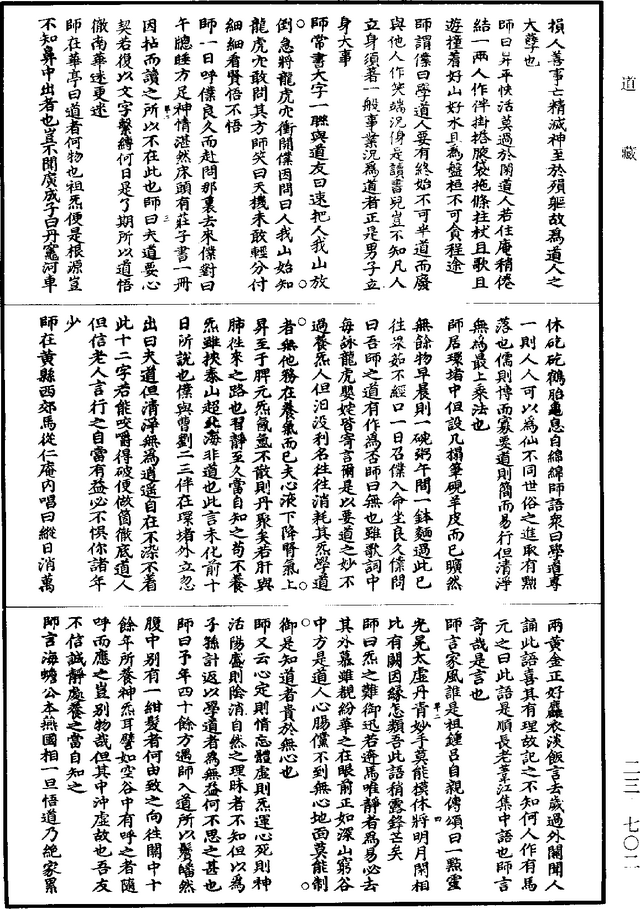 道藏
損人善事亡精滅神至於殞軀故為道人之
大孽也
師曰昇平快活莫過於閑道人若住庵稍倦
結一兩人作伴掛搭腋袋拖條拄杖且歌且
遊撞着好山好水且為盤桓不可貪程途
師謂僕曰學道人要有終始不可半道而廢
與他人作笑端況身是讀書兒豈不知凡人
立身須著一般事業況為道者正是男子立
身大事
師常書大字一聯與道友曰速把人我山放
倒急將龍虎穴衝開僕因問曰人我山始知
龍虎穴敢問其方師笑曰天機未敢輕分付
細細看賢悟不悟
師一日呼僕良久而赴問那裏去來僕對曰
午牕睡方足神情湛然床頭有莊子書一冊
因拈而讀之所以不在此也師曰夫道要心
契若復以文字繫縛何日是了期所以道悟
徹南華迷更迷
師在華亭曰道者何物也祖炁便是根源豈
不知鼻中出者也豈不聞廣成子曰丹竈河車
休矻矻鶴胎龜息自綿綿師語衆曰學道專
一則人人可以為仙不同世俗之進取有黜
落也儒則博而寡要道則簡而易行但清淨
無為最上乘法也
師居環堵中但設几榻筆硯羊皮而已曠然
無餘物早晨則一碗粥午間一鉢麵過此已
往果茹不經口一日召僕入命坐良久僕問
曰吾師之道有作為否師曰無也雖歌詞中
每詠龍虎嬰姹皆寄言爾是以要道之妙不
過養炁人但汩沒利名往往消耗其炁學道
者無他務在養氣而已夫心液下降腎氣上
昇至于脾元炁氤氳不散則丹聚矣若肝與
肺往來之路也習靜至久當自知之苟不養
炁雖挾泰山超北海非道也此言未化前十
日所說也僕與曹劉二三伴在環堵外立忽
出曰夫道但清淨無為逍遙自在不染不着
此十二字若能咬嚼得破便做箇徹底道人
但信老人言行之自當有益必不悞你諸年
少
師在黃縣西郊馬從仁庵內唱曰縱日消萬
兩黃金正好麤衣淡飯言去歲過外閑聞人
誦此語喜其有理故記之不知何人作有馬
元之曰此語是順長老葦江集中語也師言
奇哉是言也
師言家風誰是祖鍾呂自親傳頌曰一點靈
光晃太虛丹青妙手莫能模休將明月閑相
比有闕因緣怎類吾此語稍露鋒芒矣
師曰炁之難御迅若逩馬唯靜者為易必去
其外慕雖覩紛華之在眼前正如深山窮谷
中方是道人心腸儻不到無心地面莫能制
御是知道者貴於無心也
師又云心定則情忘體虛則炁運心死則神
活陽盛則陰消自然之理昧者不知但以為
子孫計返以學道者為無益何不思之甚也
師曰予年四十餘方遇師入道所以鬢皤然
腹中別有一紺髮者何由致之向往關中十
餘年所養神炁耳譬如空谷中有呼之者隨
呼而應之豈別物哉但其中沖虛故也吾友
不信試靜處養之當自知之
師言海蟾公本燕國相一旦悟道乃絕家累
二三—七〇二